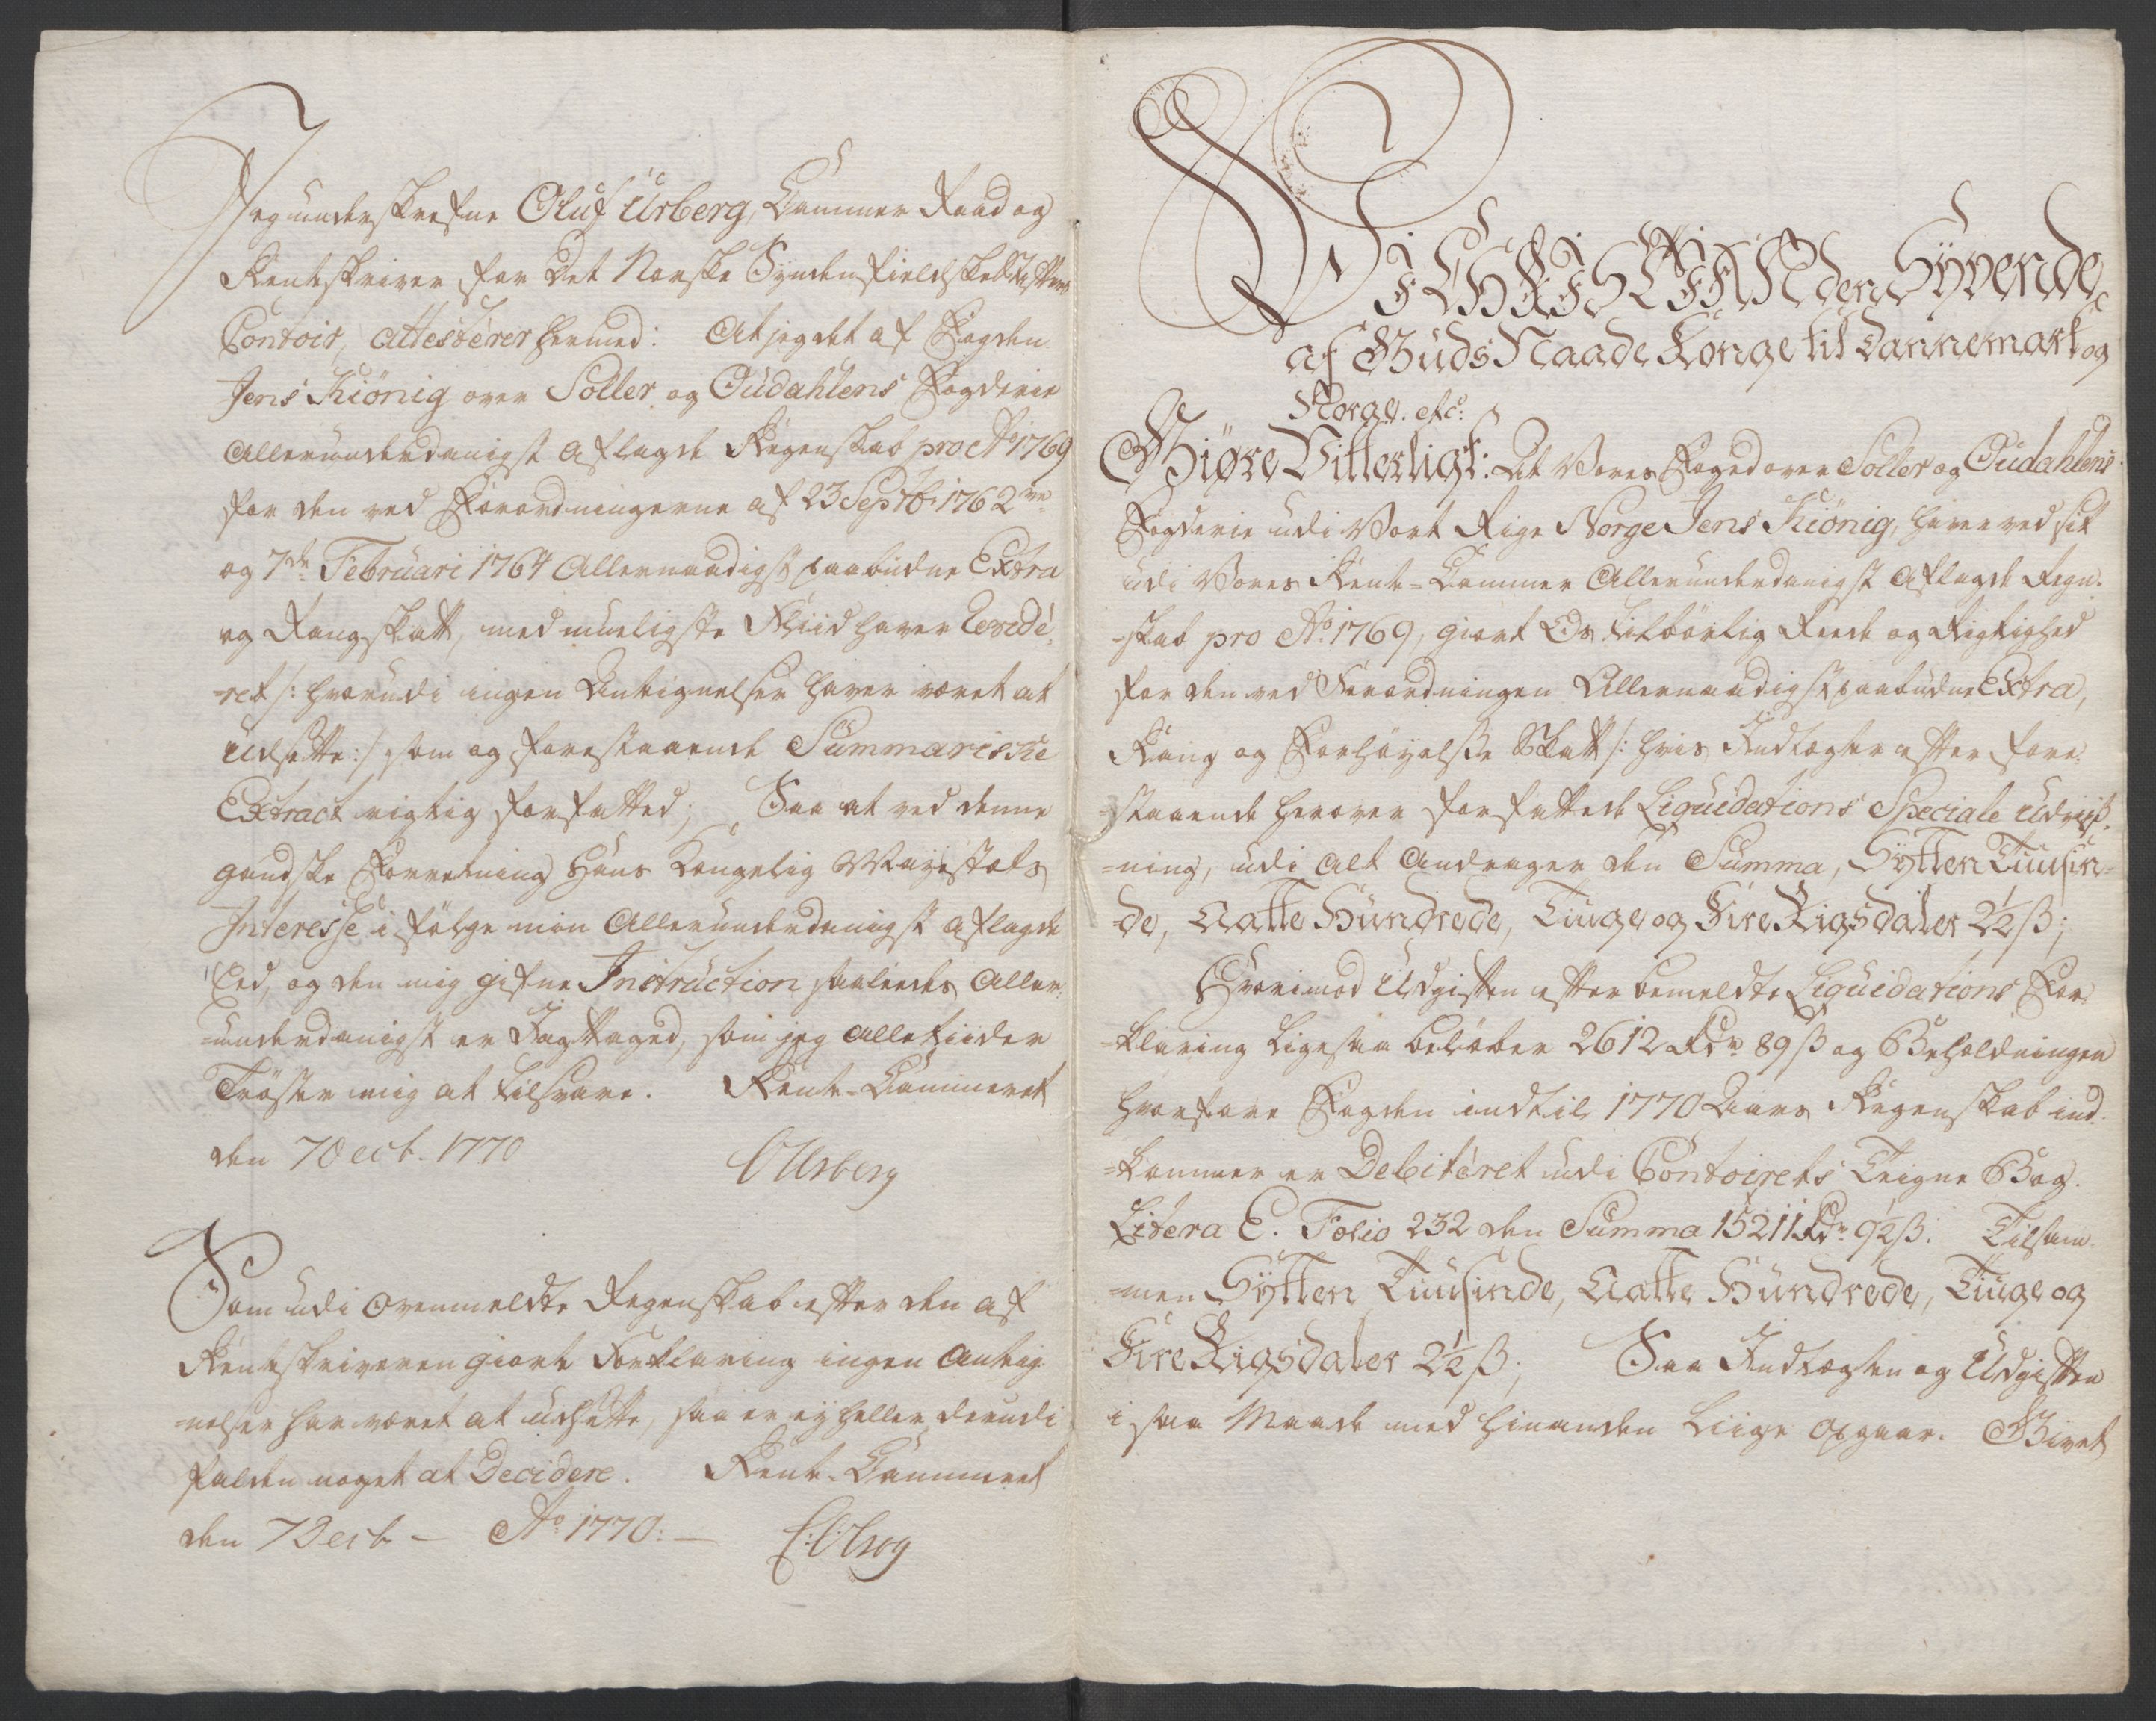 Jeg underskrefne Oluf Urberg, Cammer Raad og
Renteskriver for Det Norske Syndenfieldske Stifters
Contoir, Attesterer hermed: At jeg det af Fogden
Jens Kiönig over Soller og Oudahlens Fogderie
Allerunderdanigst aflagde Regenskab pro Ao 1769
for den ved Forordningerne af 23 Septbr 1762
og 7de Februari 1764 Allernaadigst paabudne Extra
og Rangskatt, med mueligste Fliid haver Revidé-
-ret /: hvorudi ingen Antegnelser haver været at
udsætte :/ som og forestaaende Summariske
Extract rigtig forfatted; Saa at ved denne
gandske Forretning Hans Kongelig Mayestæts
Interesse i følge min Allerunderdanigst aflagde
Eed, og den mig gifne Instruction saaledes Aller-
-underdanigst er Iagttaged, som jeg alletiider
Trøster mig at tilsvare. Rente-Cammeret
den 7 Decb. 1770
OUrberg
Som udi ovenmeldte Regenskab efter den af
Renteskriveren giorte Forklaring ingen Anteg-
-nelser har været at udsætte, saa er ey heller derudi
falden noget at Decidere. Rente-Cammeret
den 7 Decb - Ao 1770: -
Vi CHRISTIAN den Syvende,
af Guds Naade Konge til Dannemark og
Norge. etc:
Giøre Vitterligt: At Vores Foged over Soller og Oudahlens
Fogderie udi Vort Rige Norge Jens Kiönig, haver ved sit
udi Vores Rente-Cammer Allerunderdanigst aflagde Regn-
-skab pro Ao 1769, giort Os tilbørlig Reede og Rigtighed
for den ved Forordningen Allernaadigst paabudne Extra,
Rang og Forhøyelse Skatt /: hvis Indtægter efter fore-
-staaende herover forfattede Liquidations Speciale Udviis-
-ning, udi alt Andrager den Summa, Sytten Tuusin-
-de, Aatte Hundrede, Tiuge og Fire Rigsdaler 2½ ß;
Hvorimod Udgiften efter bemeldte Liquidations For-
-klaring ligesaa beløber 2612 Rdr 89 ß og Beholdningen
hvorfore Fogden indtil 1770 Aars Regenskab ind-
-kommer er Debitéret udi Contoirets Teigne Bog
Litera E. Folio 232 den Summa 15211 Rdr 9½ ß. Tilsam-
-men Sytten Tuusinde, Aatte Hundrede, Tiuge og
Fire Rigsdaler 2½ ß; Saa Indtægten og Udgiften
i saa Maade med hinanden Liige opgaar. Givet